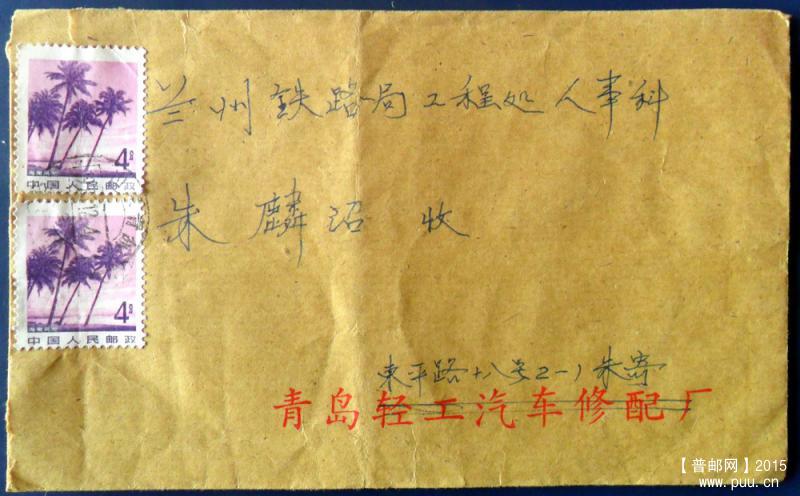 4分
中国人民邮政
4分
中国人民邮政
兰州铁路局工程处人事科
朱麟诏收
东平路十八号2-1朱寄
青岛轻工汽车修配厂
【普邮网】2015
www.puu.cn